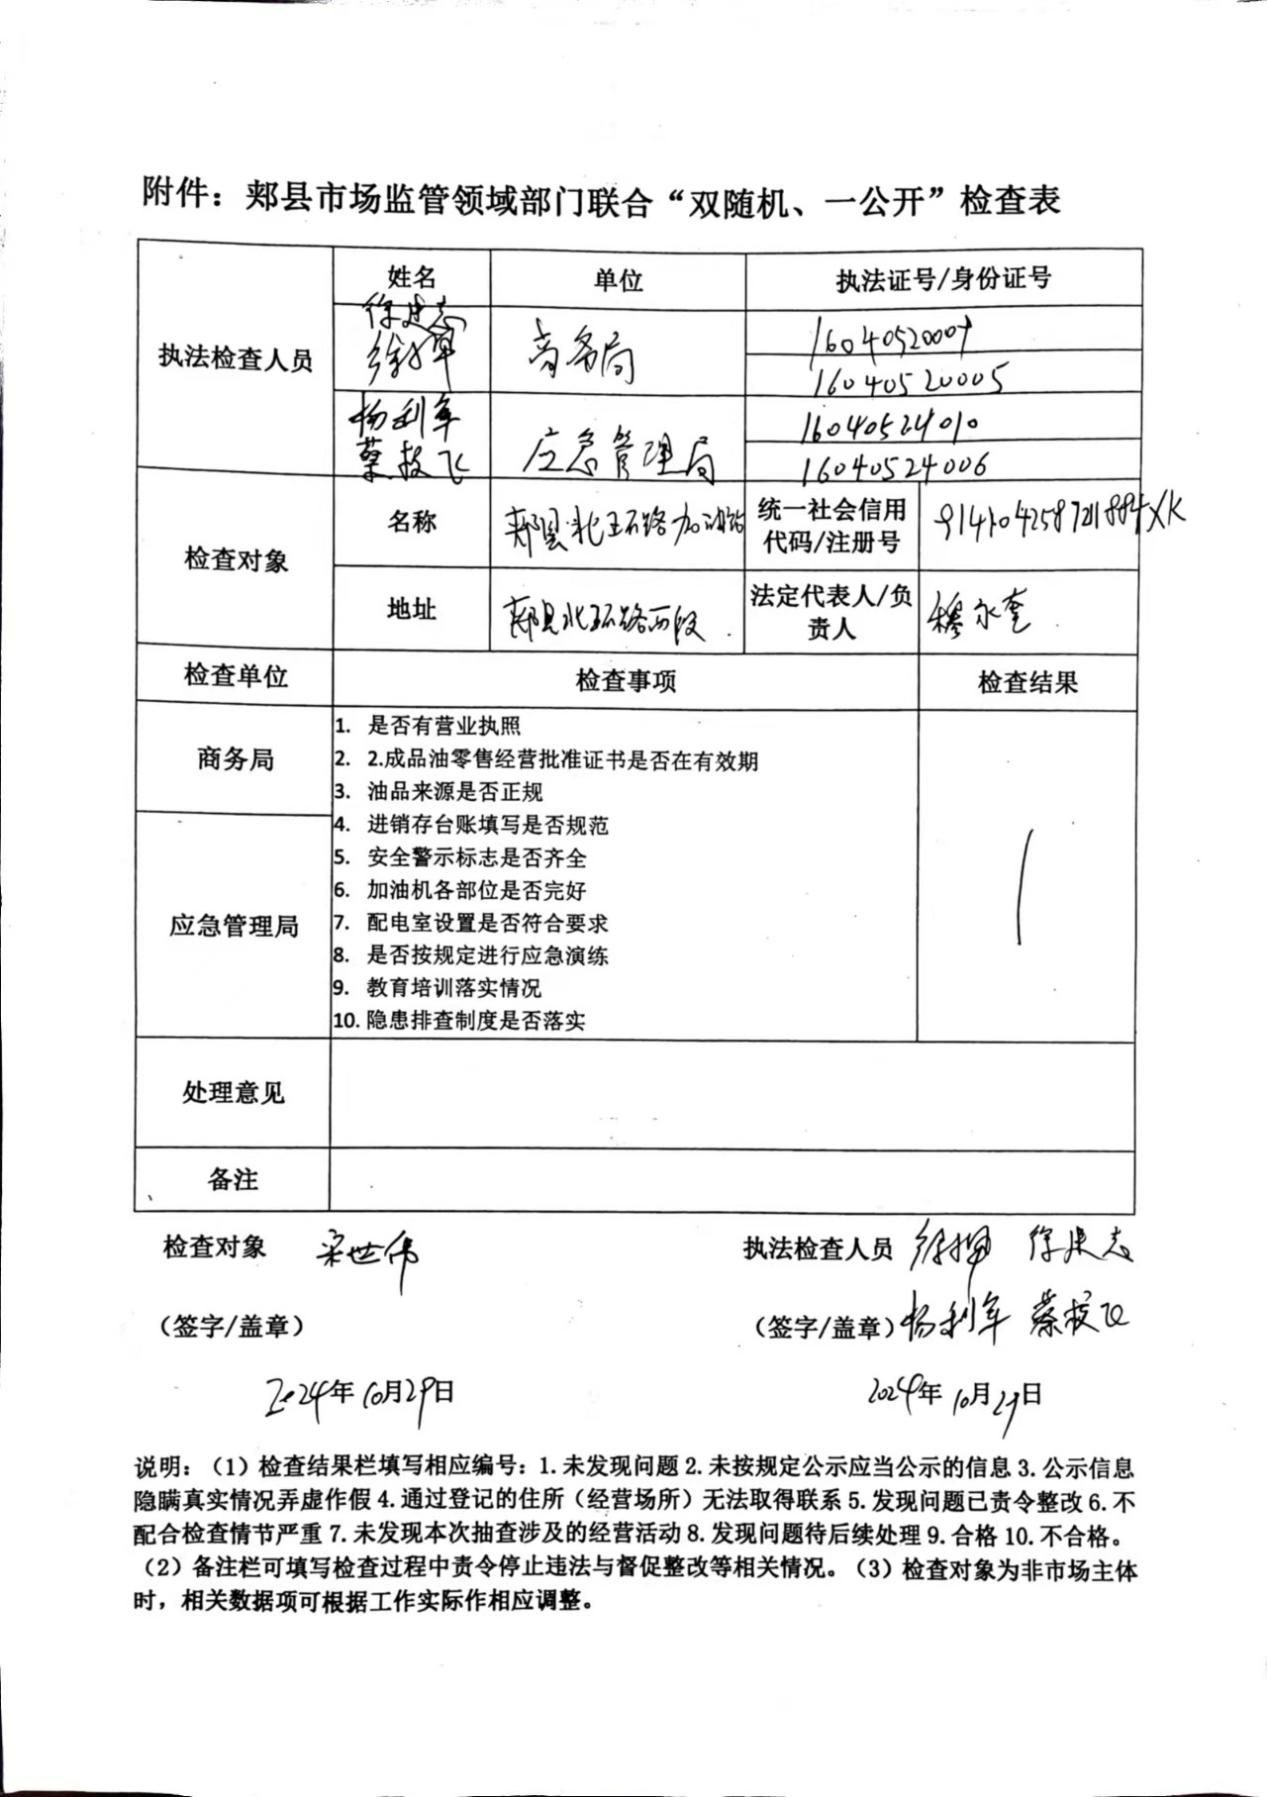 附件：郏县市场监管领域部门联合“双随机、一公开”检查表
执法检查人员
姓名 单位 执法证号/身份证号
徐建志 商务局 16040520007
16040520005
杨利军 应急管理局 16040524010
蔡校飞 16040524006
检查对象
名称 郏县北环路加油站 统一社会信用代码/注册号
地址 郏县北环路西段 法定代表人/负责人 穆永奎
检查单位 检查事项 检查结果
商务局
1. 是否有营业执照
2. 2.成品油零售经营批准证书是否在有效期
3. 油品来源是否正规
应急管理局
4. 进销存台账填写是否规范
5. 安全警示标志是否齐全
6. 加油机各部位是否完好
7. 配电室设置是否符合要求
8. 是否按规定进行应急演练
9. 教育培训落实情况
10. 隐患排查制度是否落实
1
处理意见
备注
检查对象 宋世伟 执法检查人员 徐建志
（签字/盖章） （签字/盖章） 杨利军 蔡校飞
2024年10月29日 2024年10月29日
说明：（1）检查结果栏填写相应编号：1. 未发现问题 2. 未按规定公示应当公示的信息 3. 公示信息
隐瞒真实情况弄虚作假 4. 通过登记的住所（经营场所）无法取得联系 5. 发现问题已责令整改 6. 不
配合检查情节严重 7. 未发现本次抽查涉及的经营活动 8. 发现问题待后续处理 9. 合格 10. 不合格。
（2）备注栏可填写检查过程中责令停止违法与督促整改等相关情况。（3）检查对象为非市场主体
时，相关数据项可根据工作实际作相应调整。